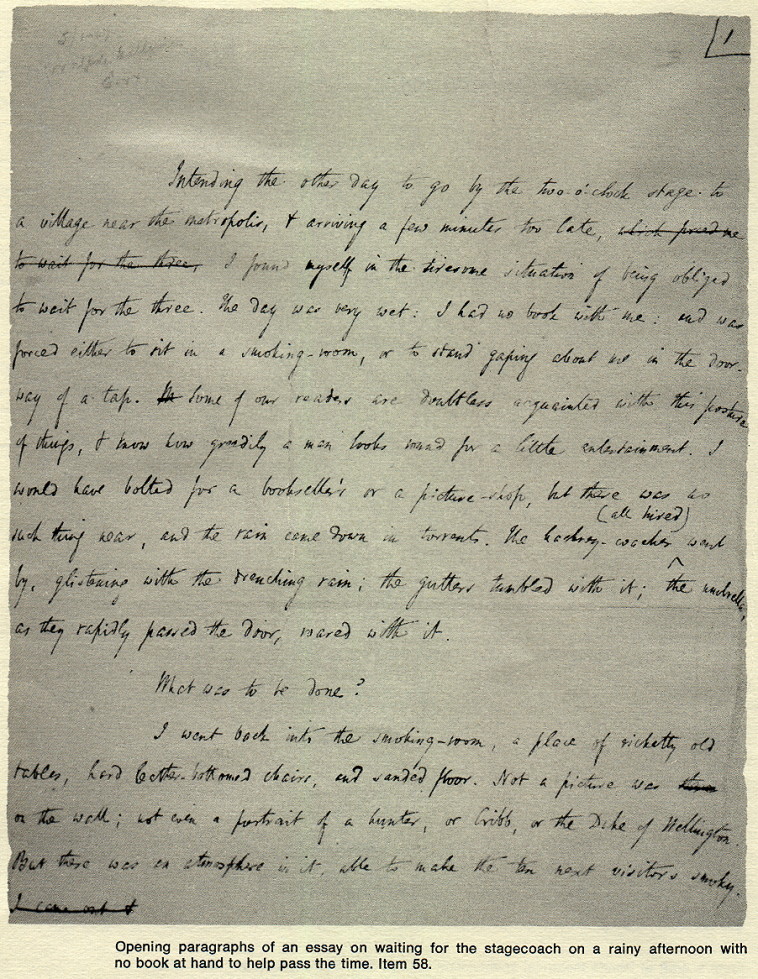 1
Intending the other day to go by the two-o'-clock stage to
a village near the metropolis, & arriving a few minutes too late, which forced me
to wait for the three, I found myself in the tiresome situation of being obliged
to wait for the three. The day was very wet: I had no book with me: and was
forced either to sit in a smoking-room, or to stand gaping about me in the door-
way of a tap. Some of our readers are doubtless acquainted with this posture
of things, & know how greedily a man looks round for a little entertainment. I
would have bolted for a bookseller's or a picture-shop, but there was no
(all hired)
such thing near, and the rain came down in torrents. The hackney-coaches went
by, glistening with the drenching rain; the gutters tumbled with it; the umbrellas,
as they rapidly passed the door, roared with it.
What was to be done?
I went back into the smoking-room, a place of ricketty old
tables, hard leather-bottomed chairs, and sanded floor. Not a picture was
on the wall; not even a portrait of a hunter, or Cribb, or the Duke of Wellington.
But there was an atmosphere in it, able to make the ten next visitors smoky.
I came out &
Opening paragraphs of an essay on waiting for the stagecoach on a rainy afternoon with
no book at hand to help pass the time. Item 58.